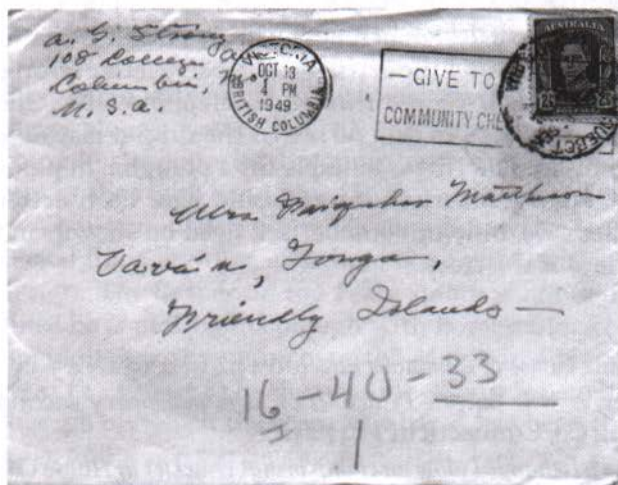 A. G. Strong
108 College
Columbia, Mo.
U. S. A.
VICTORIA
OCT 13
4 PM
1949
BRITISH COLUMBIA
— GIVE TO
COMMUNITY CHE
AUSTRALIA
Mrs Farquhar Matheson
Vavau, Tonga,
Friendly Islands —
16 - 40 - 33